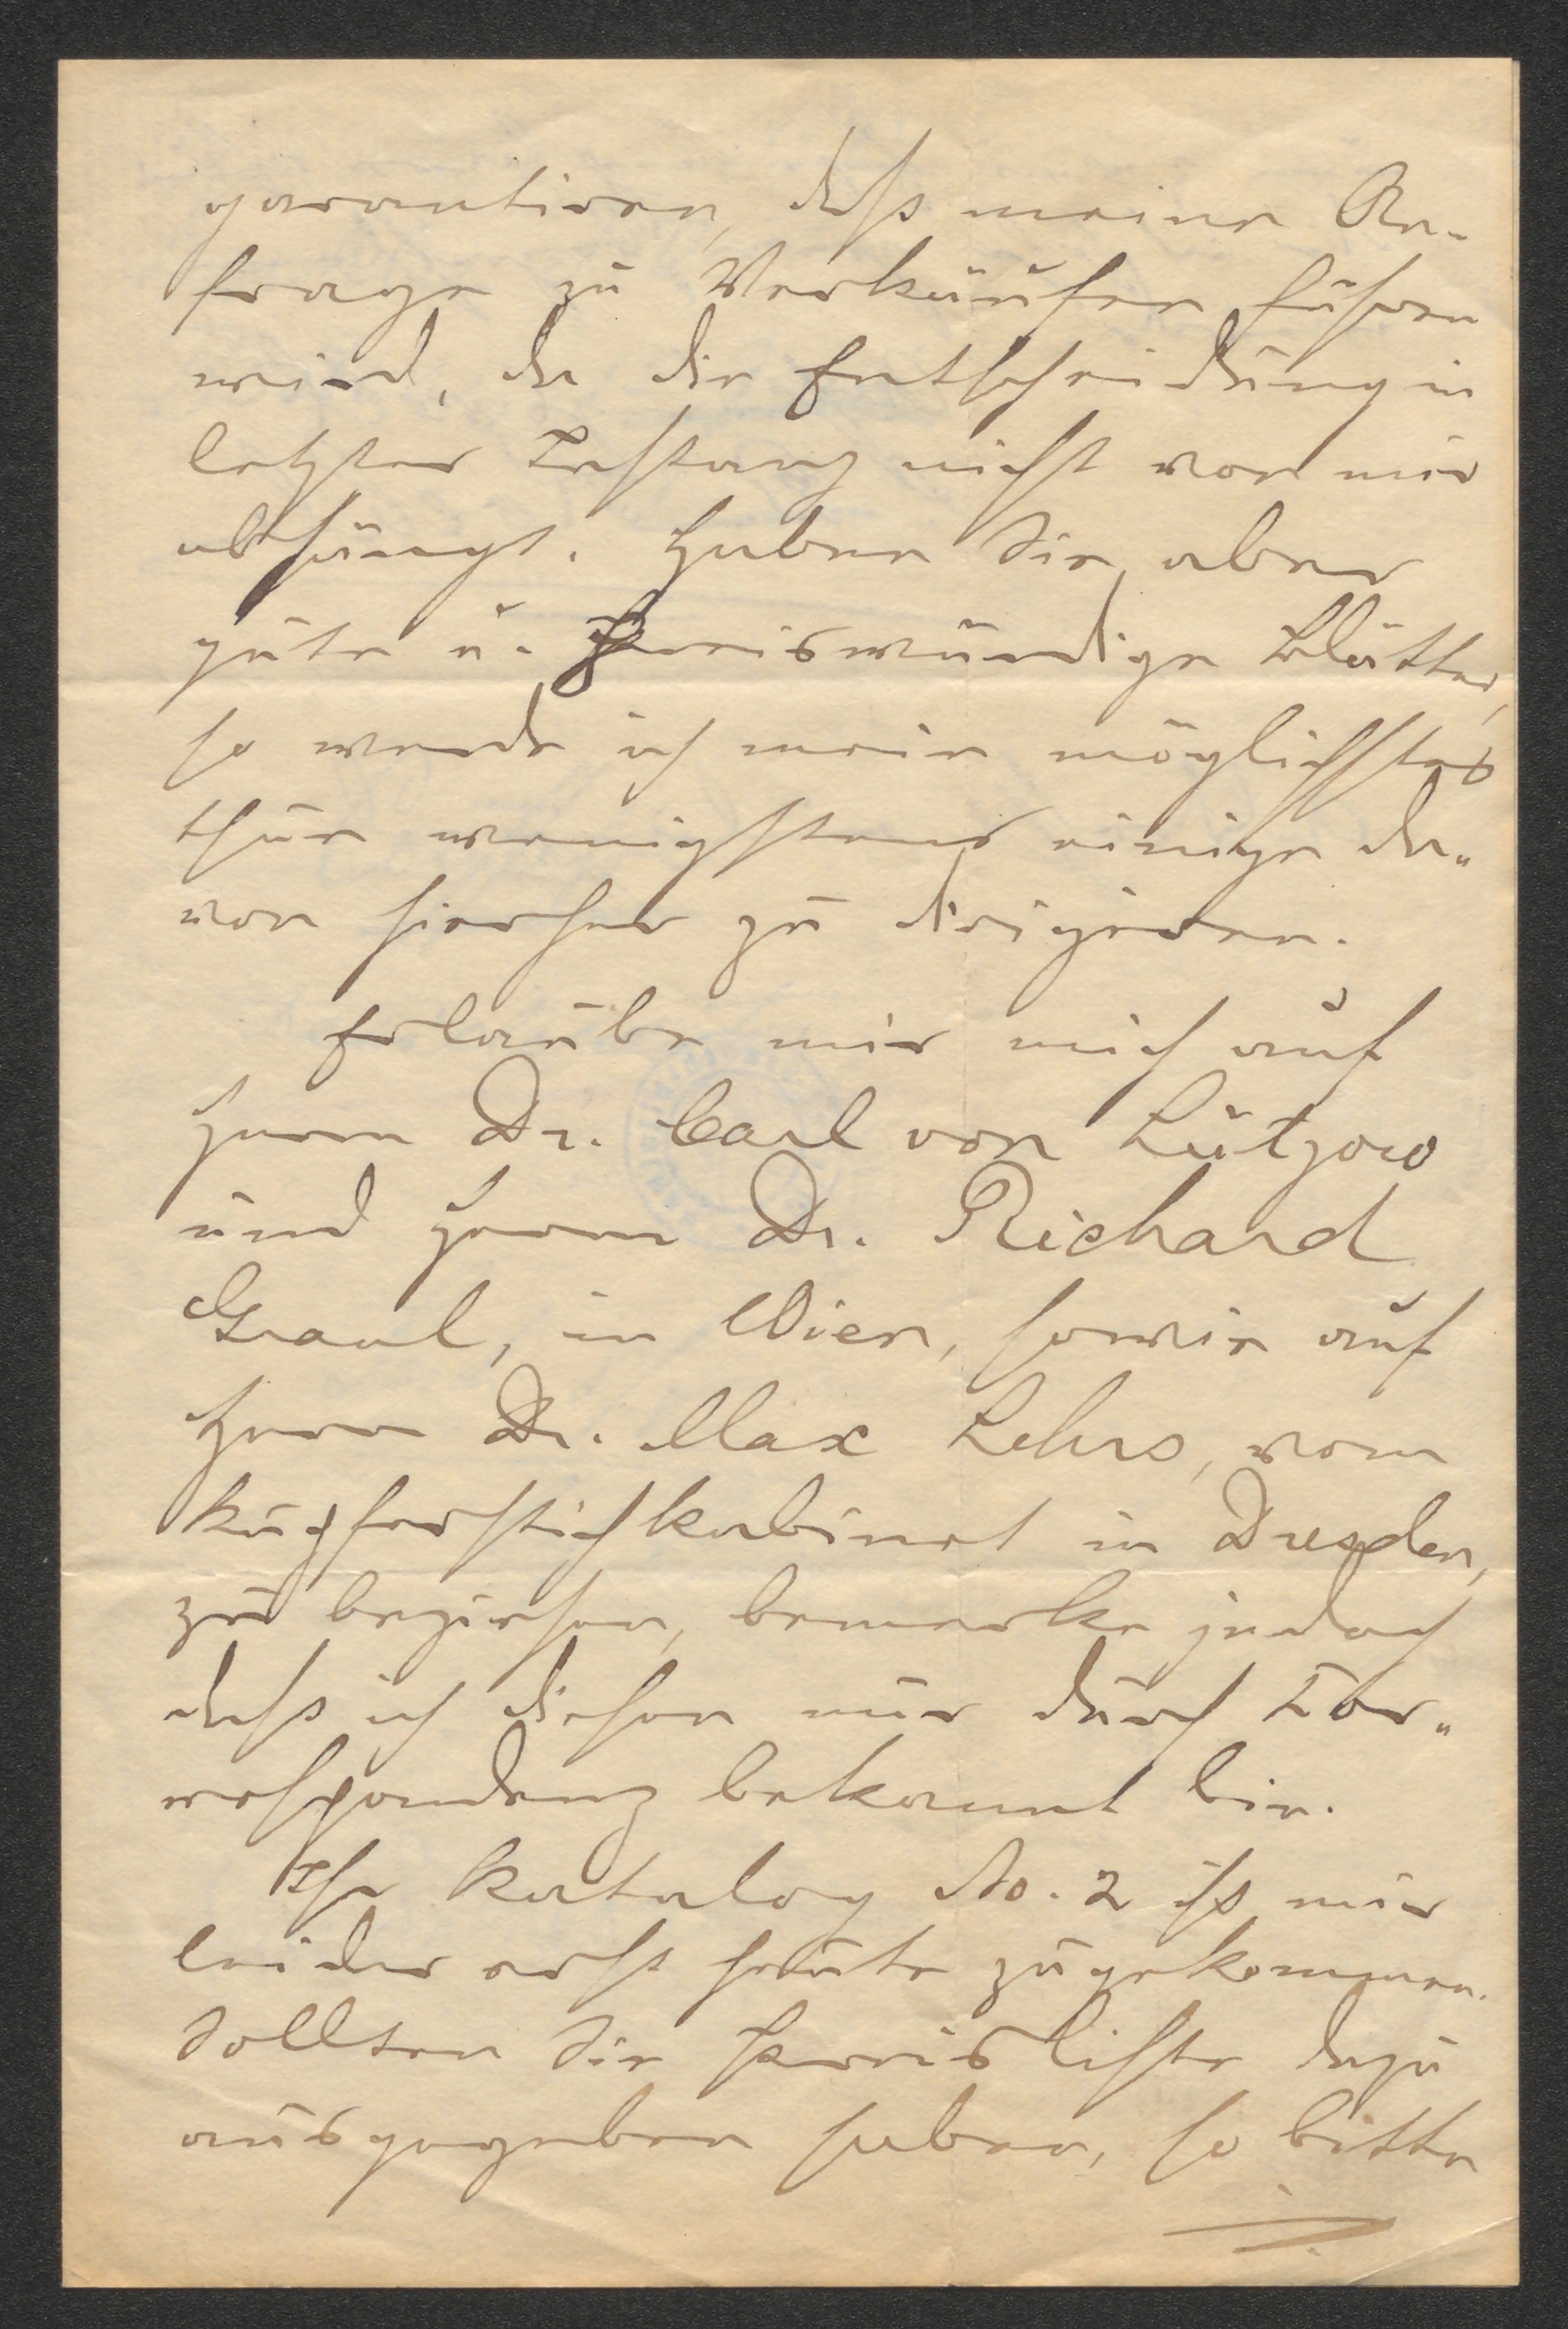 garantiren, daß meine An-
frage zu Verkäufen führen
wird, da die Entscheidung in
letzter Instanz nicht von mir
abhängt. Haben Sie aber
gute u. preiswürdige Blätter,
so werde ich mein möglichstes
thun wenigstens einige da-
von hierher zu dirigiren.
Erlaube mir mich auf
Herrn Dr. Carl von Lützow
und Herrn Dr. Richard
Graul, in Wien, sowie auf
Herrn Dr. Max Lehrs, vom
Kupferstichkabinet in Dresden,
zu beziehen, bemerke jedoch
daß ich diesen nur durch Cor-
respondenz bekannt bin.
Ihr Katalog No. 2 ist mir
leider erst heute zugekommen.
Sollten Sie Preisliste dazu
ausgegeben haben, so bitte